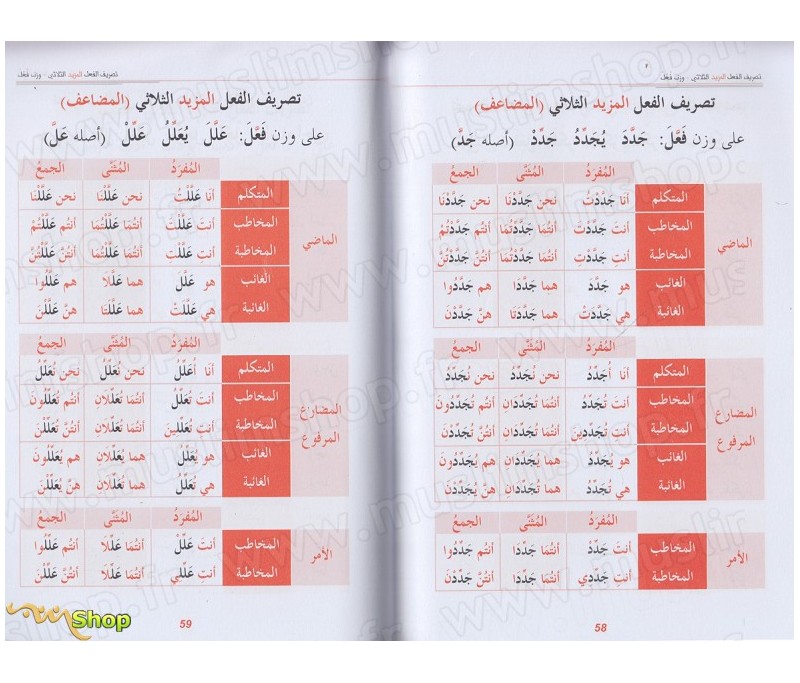 تصريف الفعل المزيد الثلاثي - وزن فعّل
تصريف الفعل المزيد الثلاثي (المضاعف)
على وزن فَعَّلَ: جَدَّدَ يُجَدِّدُ جَدِّدْ (أصله جَدَّ)
المُفرَدُ المُثَنَّى الجمعُ
الماضي
المتكلم أنا جَدَّدْتُ نحن جَدَّدْنَا نحن جَدَّدْنَا
المخاطب أنتَ جَدَّدْتَ أنتُمَا جَدَّدْتُمَا أنتُم جَدَّدْتُمْ
المخاطبة أنتِ جَدَّدْتِ أنتُمَا جَدَّدْتُمَا أنتُنَّ جَدَّدْتُنَّ
الغائب هو جَدَّدَ هما جَدَّدَا هم جَدَّدُوا
الغائبة هي جَدَّدَتْ هما جَدَّدَتَا هنَّ جَدَّدْنَ
المُفرَدُ المُثَنَّى الجمعُ
المضارع المرفوع
المتكلم أنا أُجَدِّدُ نحن نُجَدِّدُ نحن نُجَدِّدُ
المخاطب أنتَ تُجَدِّدُ أنتُمَا تُجَدِّدَانِ أنتُم تُجَدِّدُونَ
المخاطبة أنتِ تُجَدِّدِينَ أنتُمَا تُجَدِّدَانِ أنتُنَّ تُجَدِّدْنَ
الغائب هو يُجَدِّدُ هما يُجَدِّدَانِ هم يُجَدِّدُونَ
الغائبة هي تُجَدِّدُ هما تُجَدِّدَانِ هنَّ يُجَدِّدْنَ
المُفرَدُ المُثَنَّى الجمعُ
الأمر
المخاطب أنتَ جَدِّدْ أنتُمَا جَدِّدَا أنتُم جَدِّدُوا
المخاطبة أنتِ جَدِّدِي أنتُمَا جَدِّدَا أنتُنَّ جَدِّدْنَ
58
تصريف الفعل المزيد الثلاثي - وزن فعّل
تصريف الفعل المزيد الثلاثي (المضاعف)
على وزن فَعَّلَ: عَلَّلَ يُعَلِّلُ عَلِّلْ (أصله عَلَّ)
المُفرَدُ المُثَنَّى الجمعُ
الماضي
المتكلم أنا عَلَّلْتُ نحن عَلَّلْنَا نحن عَلَّلْنَا
المخاطب أنتَ عَلَّلْتَ أنتُمَا عَلَّلْتُمَا أنتُم عَلَّلْتُمْ
المخاطبة أنتِ عَلَّلْتِ أنتُمَا عَلَّلْتُمَا أنتُنَّ عَلَّلْتُنَّ
الغائب هو عَلَّلَ هما عَلَّلَا هم عَلَّلُوا
الغائبة هي عَلَّلَتْ هما عَلَّلَتَا هنَّ عَلَّلْنَ
المُفرَدُ المُثَنَّى الجمعُ
المضارع المرفوع
المتكلم أنا أُعَلِّلُ نحن نُعَلِّلُ نحن نُعَلِّلُ
المخاطب أنتَ تُعَلِّلُ أنتُمَا تُعَلِّلَانِ أنتُم تُعَلِّلُونَ
المخاطبة أنتِ تُعَلِّلِينَ أنتُمَا تُعَلِّلَانِ أنتُنَّ تُعَلِّلْنَ
الغائب هو يُعَلِّلُ هما يُعَلِّلَانِ هم يُعَلِّلُونَ
الغائبة هي تُعَلِّلُ هما تُعَلِّلَانِ هنَّ يُعَلِّلْنَ
المُفرَدُ المُثَنَّى الجمعُ
الأمر
المخاطب أنتَ عَلِّلْ أنتُمَا عَلِّلَا أنتُم عَلِّلُوا
المخاطبة أنتِ عَلِّلِي أنتُمَا عَلِّلَا أنتُنَّ عَلِّلْنَ
59
Shop
www.muslimshop.fr